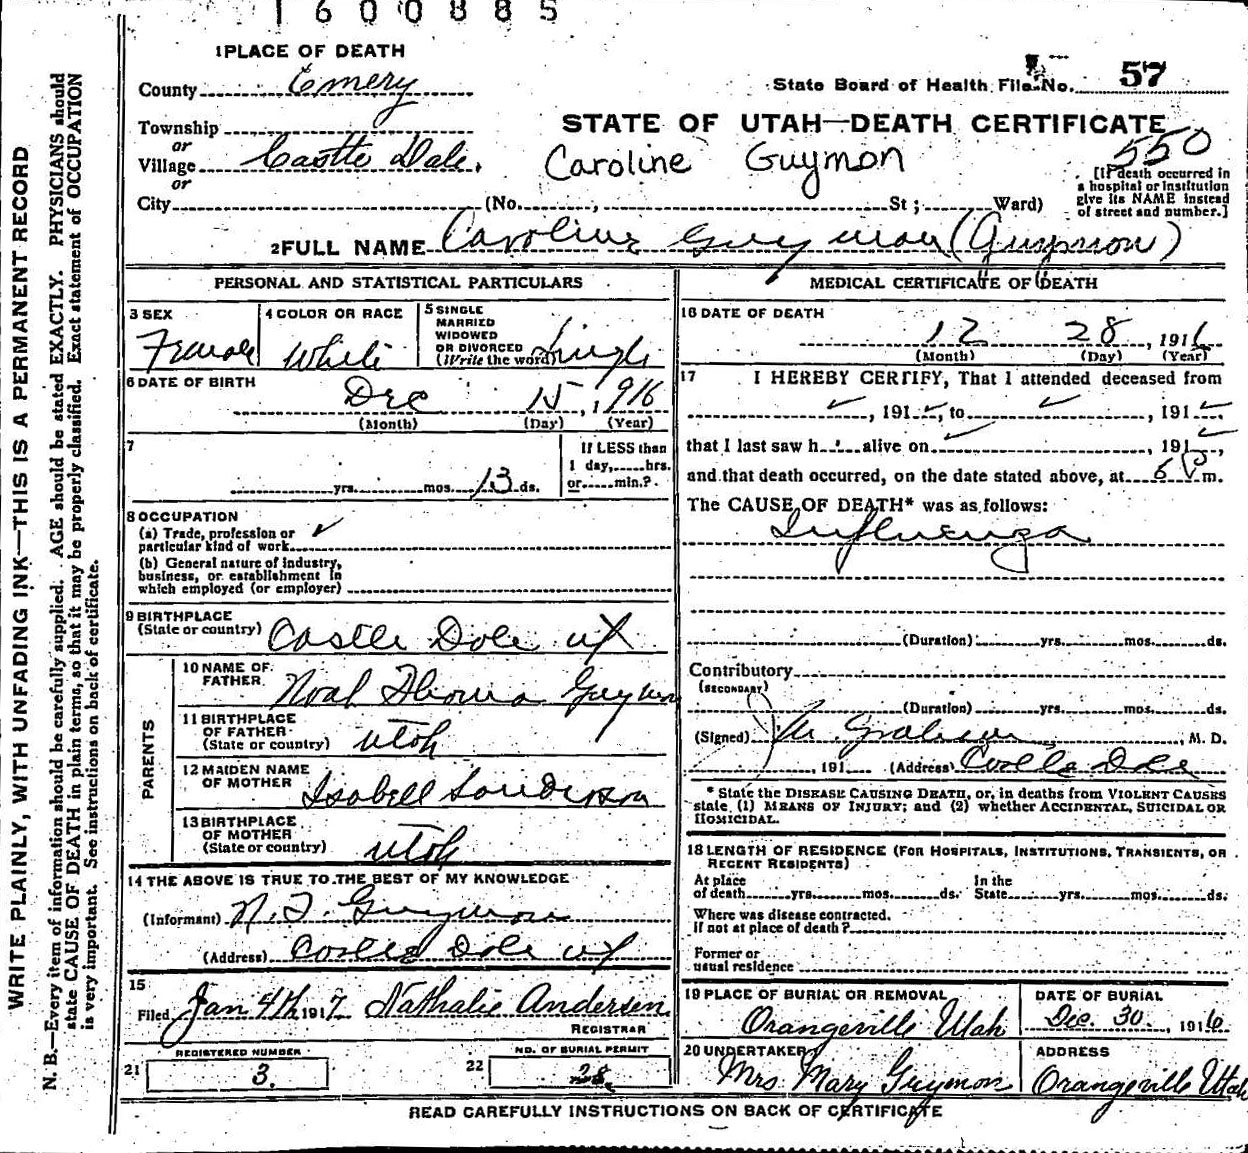 1600885
1 PLACE OF DEATH
County Emery
State Board of Health File No. 57
STATE OF UTAH—DEATH CERTIFICATE
Township
or
Village Castle Dale.
Caroline Guymon
550
or
City (No. , St ; Ward)
[If death occurred in
a hospital or institution
give its NAME instead
of street and number.]
2 FULL NAME Caroline Guymon (Guymon)
PERSONAL AND STATISTICAL PARTICULARS
3 SEX
Female
4 COLOR OR RACE
White
5 SINGLE
MARRIED
WIDOWED
OR DIVORCED
(Write the word) Single
6 DATE OF BIRTH
Dec 15, 1916
(Month) (Day) (Year)
7
yrs. mos. 13 ds.
If LESS than
1 day, hrs.
or min.?
8 OCCUPATION
(a) Trade, profession or
particular kind of work
(b) General nature of industry,
business, or establishment in
which employed (or employer)
9 BIRTHPLACE
(State or country) Castle Dale Ut
PARENTS
10 NAME OF
FATHER Noah Thomas Guymon
11 BIRTHPLACE
OF FATHER
(State or country) Utah
12 MAIDEN NAME
OF MOTHER Isabell Sanderson
13 BIRTHPLACE
OF MOTHER
(State or country) Utah
14 THE ABOVE IS TRUE TO THE BEST OF MY KNOWLEDGE
(Informant) N. T. Guymon
(Address) Castle Dale Ut
15
Filed Jan 4th 1917 Nathalie Andersen
REGISTRAR
21 REGISTERED NUMBER
3.
22 NO. OF BURIAL PERMIT
28
MEDICAL CERTIFICATE OF DEATH
16 DATE OF DEATH
12 28, 1916
(Month) (Day) (Year)
17 I HEREBY CERTIFY, That I attended deceased from
, 191 , to , 191
that I last saw h alive on , 191 ,
and that death occurred, on the date stated above, at 6 P m.
The CAUSE OF DEATH* was as follows:
Influenza
(Duration) yrs. mos. ds.
Contributory
(SECONDARY)
(Duration) yrs. mos. ds.
(Signed) , M. D.
, 191 (Address) Castle Dale
* State the DISEASE CAUSING DEATH, or, in deaths from VIOLENT CAUSES
state (1) MEANS OF INJURY; and (2) whether ACCIDENTAL, SUICIDAL OR
HOMICIDAL.
18 LENGTH OF RESIDENCE (FOR HOSPITALS, INSTITUTIONS, TRANSIENTS, OR
RECENT RESIDENTS)
At place In the
of death yrs. mos. ds. State yrs. mos. ds.
Where was disease contracted.
if not at place of death?
Former or
usual residence
19 PLACE OF BURIAL OR REMOVAL
Orangeville Utah
DATE OF BURIAL
Dec. 30, 1916
20 UNDERTAKER
Mrs Mary Guymon
ADDRESS
Orangeville Utah
READ CAREFULLY INSTRUCTIONS ON BACK OF CERTIFICATE
WRITE PLAINLY, WITH UNFADING INK—THIS IS A PERMANENT RECORD
N. B.—Every item of information should be carefully supplied. AGE should be stated EXACTLY. PHYSICIANS should
state CAUSE OF DEATH in plain terms, so that it may be properly classified. Exact statement of OCCUPATION
is very important. See instructions on back of certificate.